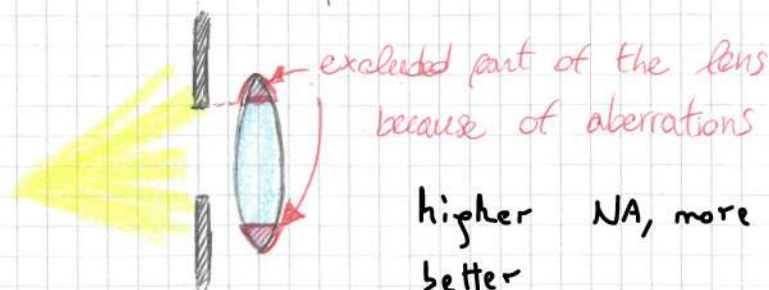 excluded part of the lens
because of aberrations
higher NA, more
better